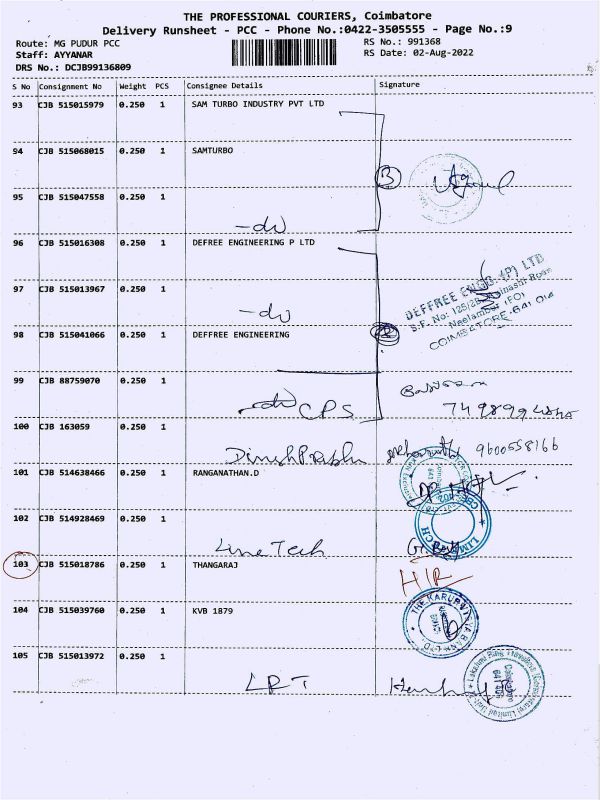 THE PROFESSIONAL COURIERS, Coimbatore
Delivery Runsheet - PCC - Phone No.:0422-3505555 - Page No.:9
Route: MG PUDUR PCC
RS No.: 991368
Staff: AYYANAR
RS Date: 02-Aug-2022
DRS No.: DCJB99136809
S No Consignment No Weight PCS Consignee Details Signature
93 CJB 515015979 0.250 1 SAM TURBO INDUSTRY PVT LTD
94 CJB 515068015 0.250 1 SAMTURBO
3
95 CJB 515047558 0.250 1
-do
96 CJB 515016308 0.250 1 DEFREE ENGINEERING P LTD
DEFFREE ENGG. (P) LTD
97 CJB 515013967 0.250 1
-do
Neelambur (PO)
COIMBATORE-641 014
98 CJB 515041066 0.250 1 DEFFREE ENGINEERING
99 CJB 88759070 0.250 1
-do CPS
100 CJB 163059 0.250 1
Dinesh Prabhu 9600558166
101 CJB 514638466 0.250 1 RANGANATHAN.D
102 CJB 514928469 0.250 1
Line Tech
103 CJB 515018786 0.250 1 THANGARAJ
104 CJB 515039760 0.250 1 KVB 1879
105 CJB 515013972 0.250 1
LRT